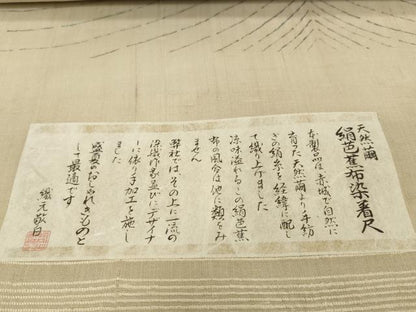 天然繭
絹芭蕉布染着尺
本製品は赤城で自然に
育った天然繭より手紡
ぎの絹糸を経緯に配し
て織り上げました
涼味溢れるこの絹芭蕉
布の風合は他に類をみ
ません
弊社ではその上に一流の
染織作家並びにデザイナ
ーに依り手加工を施し
ました
盛夏のおしゃれきものと
して最適です
織元敬白